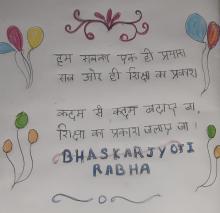 हम सबका एक ही प्रयास
सब ओर हो शिक्षा का प्रकाश
कदम से कदम बढ़ाए जा,
शिक्षा का प्रकाश जलाए जा।
BHASKARJYOTI
RABHA